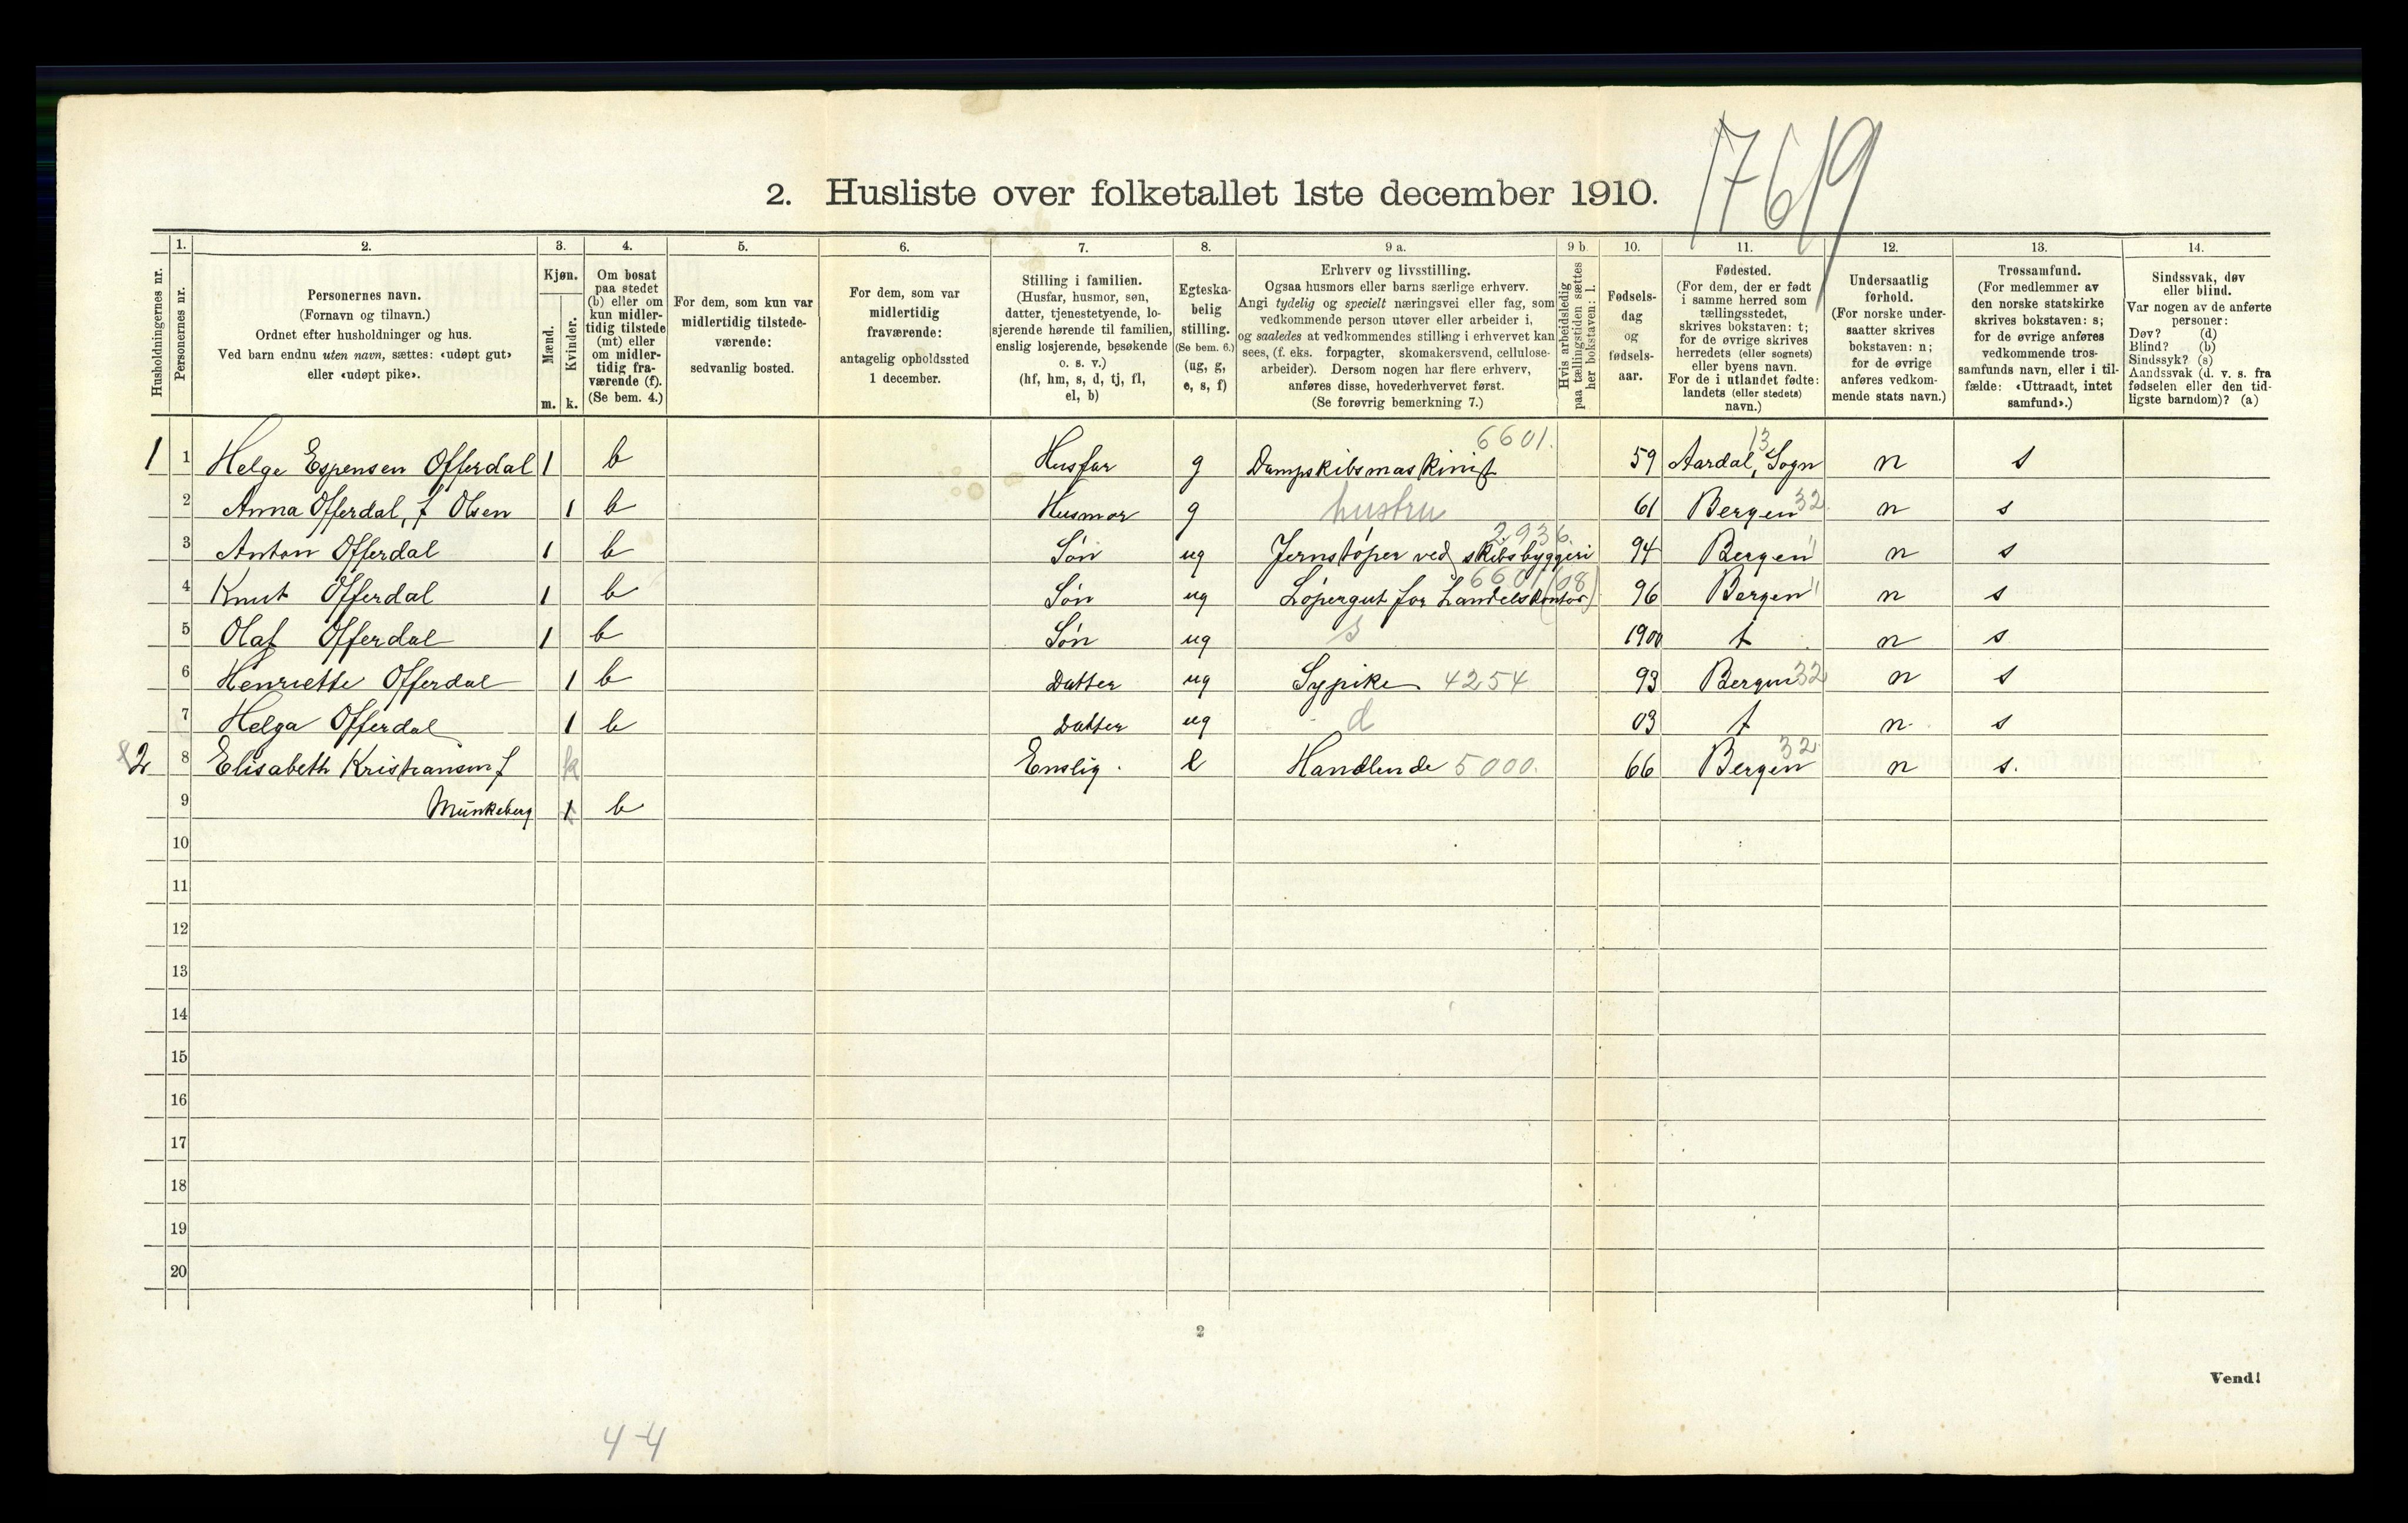 1769
2. Husliste over folketallet 1ste december 1910.
Husholdningernes nr.
1.
Personernes nr.
2.
Personernes navn.
(Fornavn og tilnavn.)
Ordnet efter husholdninger og hus.
Ved barn endnu uten navn, sættes: «udøpt gut»
eller «udøpt pike».
3.
Kjøn.
Mænd.
Kvinder.
m. k.
4.
Om bosat
paa stedet
(b) eller om
kun midler-
tidig tilstede
(mt) eller
om midler-
tidig fra-
værende (f).
(Se bem. 4.)
5.
For dem, som kun var
midlertidig tilstede-
værende:
sedvanlig bosted.
6.
For dem, som var
midlertidig
fraværende:
antagelig opholdssted
1 december.
7.
Stilling i familien.
(Husfar, husmor, søn,
datter, tjenestetyende, lo-
sjerende hørende til familien,
enslig losjerende, besøkende
o. s. v.)
(hf, hm, s, d, tj, fl,
el, b)
8.
Egteska-
belig
stilling.
(Se bem. 6.)
(ug, g,
e, s, f)
9 a.
Erhverv og livsstilling.
Ogsaa husmors eller barns særlige erhverv.
Angi tydelig og specielt næringsvei eller fag, som
vedkommende person utøver eller arbeider i,
og saaledes at vedkommendes stilling i erhvervet kan
sees, (f. eks. forpagter, skomakersvend, cellulose-
arbeider). Dersom nogen har flere erhverv,
anføres disse, hovederhvervet først.
(Se forøvrig bemerkning 7.)
9 b.
Hvis arbeidsledig
paa tællingstiden sættes
her bokstaven: l.
10.
Fødsels-
dag
og
fødsels-
aar.
11.
Fødested.
(For dem, der er født
i samme herred som
tællingsstedet,
skrives bokstaven: t;
for de øvrige skrives
herredets (eller sognets)
eller byens navn.
For de i utlandet fødte:
landets (eller stedets)
navn.)
12.
Undersaatlig
forhold.
(For norske under-
saatter skrives
bokstaven: n;
for de øvrige
anføres vedkom-
mende stats navn.)
13.
Trossamfund.
(For medlemmer av
den norske statskirke
skrives bokstaven: s;
for de øvrige anføres
vedkommende tros-
samfunds navn, eller i til-
fælde: «Uttraadt, intet
samfund».)
14.
Sindssvak, døv
eller blind.
Var nogen av de anførte
personer:
Døv? (d)
Blind? (b)
Sindssyk? (s)
Aandssvak (d. v. s. fra
fødselen eller den tid-
ligste barndom)? (a)
1 1 Helge Espensen Offerdal 1 b Husfar g Dampskibsmaskinist 6601. 59 Aardal, Sogn 13 n s
2 Anna Offerdal, f Olsen 1 b Husmor g hustru 61 Bergen 32 n s
3 Anton Offerdal 1 b Søn ug Jernstøper ved skibsbyggeri 2936. 94 Bergen " n s
4 Knut Offerdal 1 b Søn ug Løpergut for Handelskontor 6601 (08) 96 Bergen " n s
5 Olaf Offerdal 1 b Søn ug s 1900 t n s
6 Henriette Offerdal 1 b Datter ug Sypike 4254 93 Bergen 32 n s
7 Helga Offerdal 1 b Datter ug d 03 t n s
2 8 Elisabeth Kristiansen f k Enslig. e Handlende 5000. 66 Bergen 32 n s.
9 Munkeberg 1 b
10
11
12
13
14
15
16
17
18
19
20
2
Vend!
4-4